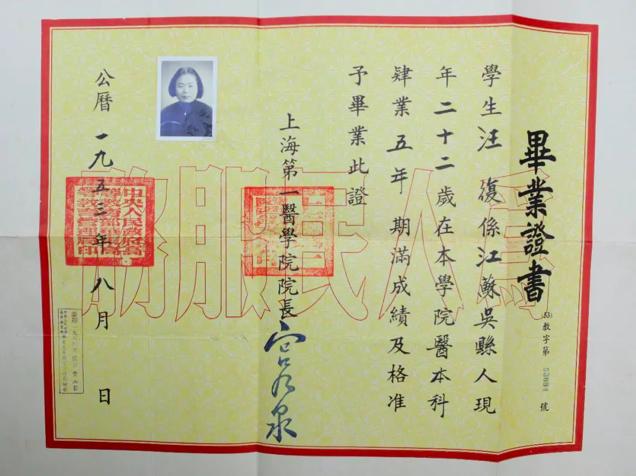 畢業證書
(53)教字第 號
學生汪復係江蘇吳縣人現
年二十二歲在本學院醫本科
肄業五年期滿成績及格准
予畢業此證
上海第一醫學院院長
宮乃泉
公曆一九五三年八月 日
為人民服務